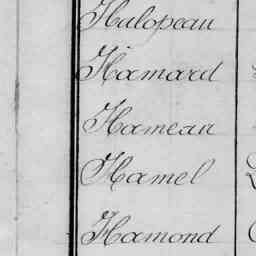 Halopeau
Hamard
Hameau
Hamel
Hamond